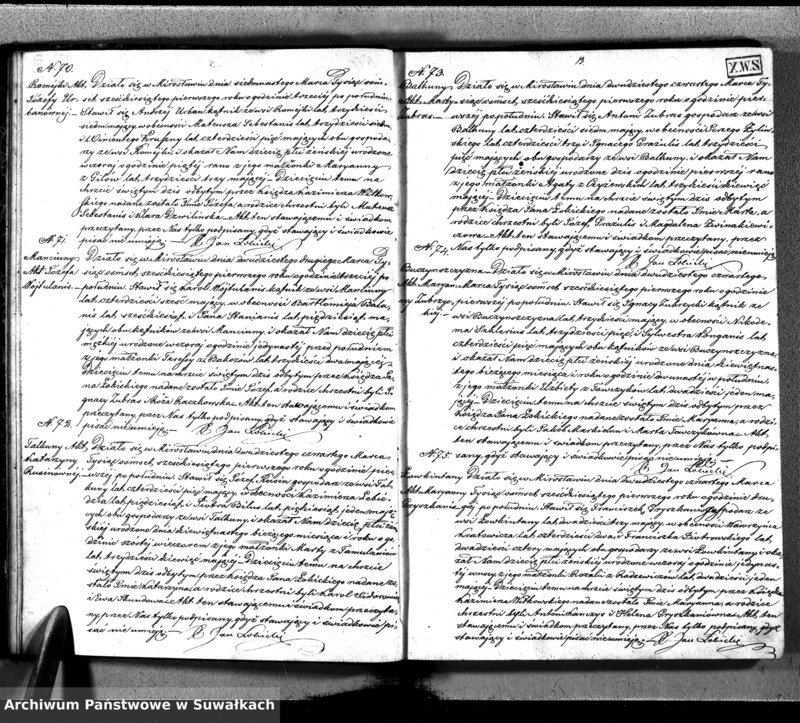 N. 70.
Romejki Akt Działo się w Mirosławiu dnia siedmnastego Marca Tysiąc ośm-
Józefy Ur- set sześćdziesiątego pierwszego roku o godzinie trzeciej po południu
banównej Stawił się Andrzej Urban kątnik ze wsi Romejki lat trzydzieści
siedm mający, w obecności Mateusza Sebestanis lat trzydzieści
i Wincentego lat czterdzieści pięć mających obu gospoda-
rzy ze wsi Romejki i okazał Nam dziecię płci żeńskiej urodzone
wczoraj o godzinie piątej rano z jego małżonki Maryanny
z lat trzydzieści trzy mającej Dziecięciu temu na
chrzcie świętym dziś odbytym przez Księdza Kazimierza Witkow-
skiego nadane zostało Imie Józefa, a rodzice chrzestni byli Mateusz
Sebestanis i Klara Akt ten stawającemu i świadkom
przeczytany, przez Nas tylko podpisany, gdyż stawający i świadkowie
pisać nie umieją X Jan Łobicki
N. 71.
Manciuny Działo się w Mirosławiu dnia dwudziestego drugiego Marca Ty-
Akt Józefa siąc ośmset sześćdziesiątego pierwszego roku o godzinie trzeciej po
Wojtulanis południu Stawił się Karol Wojtulanis kątnik ze wsi Manciuny
lat czterdzieści sześć mający, w obecności Bartłomieja Bala-
nis lat sześćdziesiąt i Jana lat pięćdziesiąt ma-
jących obu kątników ze wsi Manciuny i okazał Nam dziecię płci
męzkiej urodzone wczoraj o godzinie jedynastej przed południem
z jego małżonki Józefy z lat trzydzieści dwa mającej
Dziecięciu temu na chrzcie świętym dziś odbytym przez Księdza Ja-
na Łobickiego nadane zostało Imie Józef, a rodzice chrzestni byli I-
gnacy Zubras i Róża Kaczkowska Akt ten stawającemu i świadkom
przeczytany, przez Nas tylko podpisany, gdyż stawający i świadkowie
pisać nie umieją X Jan Łobicki
N. 72.
Talkuny Akt Działo się w Mirosławiu dnia dwudziestego czwartego Marca
Katarzyny Tysiąc ośmset sześćdziesiątego pierwszego roku o godzinie pier-
Rusinównej wszej po południu Stawił się Józef Rusin gospodarz ze wsi Tal-
kuny lat czterdzieści pięć mający, w obecności Kazimierza
lat pięćdziesiąt i Piotra lat pięćdziesiąt jeden mają-
cych obu gospodarzy ze wsi Talkuny, i okazał Nam dziecię płci żeń-
skiej urodzone dnia dziewiętnastego bieżącego miesiąca i roku o go-
dzinie szóstej wieczorem z jego małżonki Marty z
lat trzydzieści dziewięć mającej Dziecięciu temu na chrzcie
świętym dziś odbytym przez Księdza Jana Łobickiego nadane zo-
stało Imie Katarzyna, a rodzice chrzestni byli Karol
i Ewa Akt ten stawającemu i świadkom przeczyta-
ny, przez Nas tylko podpisany, gdyż stawający i świadkowie pi-
sać nie umieją X Jan Łobicki
13.
Z.W.S.
N. 73.
Balkuny Działo się w Mirosławiu dnia dwudziestego czwartego Marca Ty-
Akt Marty siąc ośmset sześćdziesiątego pierwszego roku o godzinie pier-
Zubras wszej po południu Stawił się Antoni Zubras gospodarz ze wsi
Balkuny lat czterdzieści siedm mający, w obecności Jerzego
lat czterdzieści trzy i Ignacego Grażulis lat trzydzieści
pięć mających obu gospodarzy ze wsi Balkuny, i okazał Nam
dziecię płci żeńskiej urodzone dziś o godzinie pierwszej rano
z jego małżonki Agaty z lat trzydzieści dziewięć
mającej Dziecięciu temu na chrzcie świętym dziś odbytym
przez Księdza Jana Łobickiego nadane zostało Imie Marta, a
rodzice chrzestni byli Józef Grażulis i Magdalena
Akt ten stawającemu i świadkom przeczytany, przez
Nas tylko podpisany, gdyż stawający i świadkowie pisać nie umieją
X Jan Łobicki
N. 74.
Buczynszczyzna Działo się w Mirosławiu dnia dwudziestego czwartego
Akt Maryan- Marca Tysiąc ośmset sześćdziesiątego pierwszego roku o godzinie
ny Zubrzy- pierwszej po południu Stawił się Ignacy Zubrzycki kątnik ze
ckiej wsi Buczynszczyzna lat trzydzieści mający, w obecności Nikode-
ma lat trzydzieści pięć i Sylwestra lat
czterdzieści pięć mających obu kątników ze wsi Buczynszczyzna,
i okazał Nam dziecię płci żeńskiej urodzone dnia dziewiętnas-
tego bieżącego miesiąca i roku o godzinie dwunastej w południe
z jego małżonki Elżbiety z lat dwadzieścia jeden ma-
jącej Dziecięciu temu na chrzcie świętym dziś odbytym przez
Księdza Jana Łobickiego nadane zostało Imie Maryanna, a rodzi-
ce chrzestni byli Jakób i Marta Akt
ten stawającemu i świadkom przeczytany, przez Nas tylko podpi-
sany, gdyż stawający i świadkowie pisać nie umieją
X Jan Łobicki
N. 75.
Działo się w Mirosławiu dnia dwudziestego czwartego Marca
Akt Maryanny Tysiąc ośmset sześćdziesiątego pierwszego roku o godzinie
po południu Stawił się Franciszek gospodarz ze
wsi lat dwadzieścia trzy mający, w obecności Wawrzyńca
lat czterdzieści dwa i Franciszka Piotrowskiego lat
dwadzieścia cztery mających obu gospodarzy ze wsi i oka-
zał Nam dziecię płci żeńskiej urodzone wczoraj o godzinie
z jego małżonki Rozalii z lat dwadzieścia jeden
mającej Dziecięciu temu na chrzcie świętym dziś odbytym przez Księdza
Kazimierza Witkowskiego nadane zostało Imie Maryanna, a rodzice
chrzestni byli Antoni i Akt ten
stawającemu i świadkom przeczytany, przez Nas tylko podpisany, gdyż
stawający i świadkowie pisać nie umieją X Jan Łobicki
Archiwum Państwowe w Suwałkach